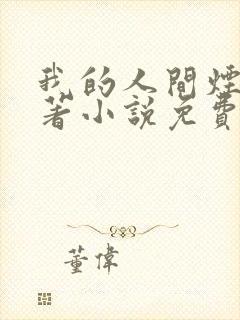 我的人間煙
著小說免費
董偉